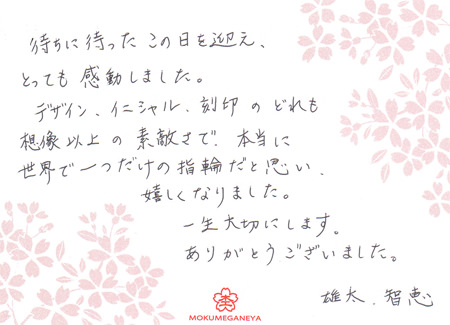 待ちに待った この日を迎え、
とっても 感動しました。
デザイン、イニシャル、刻印 の どれも
想像以上 の 素敵さで、本当に
世界で一つだけの指輪だと思い、
嬉しくなりました。
一生大切にします。
ありがとうございました。
雄太、智恵
MOKUMEGANEYA